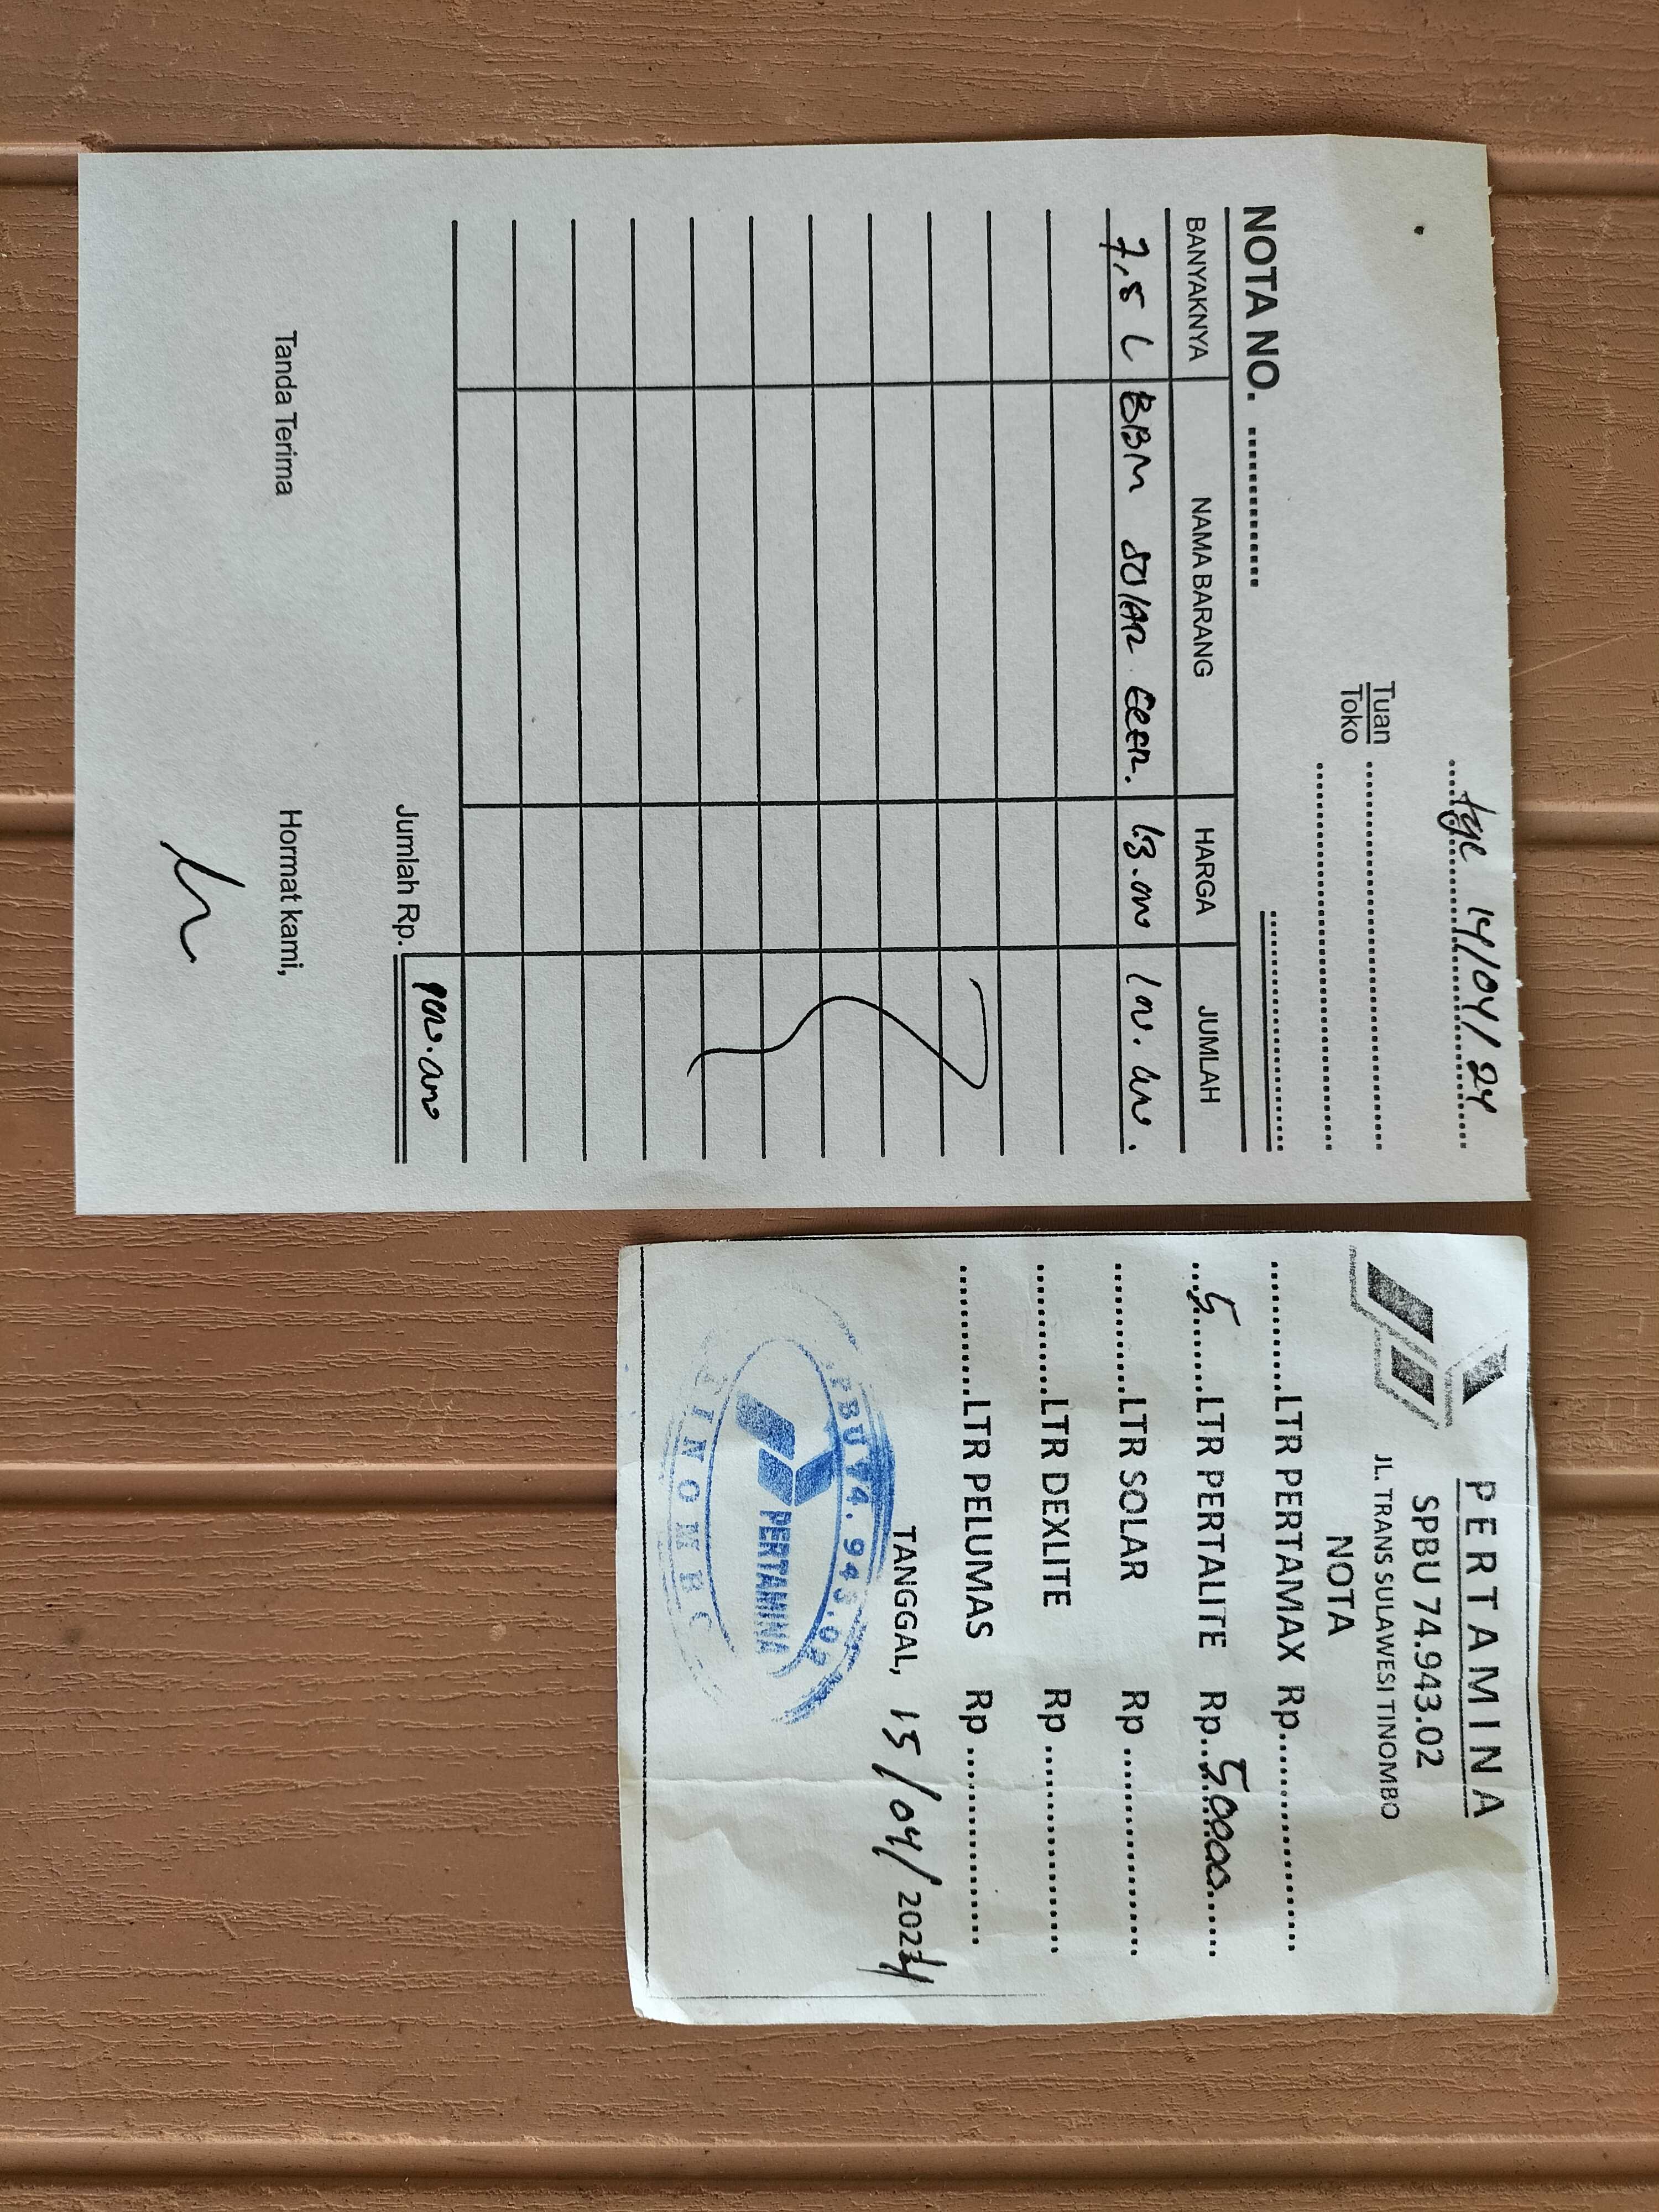 tgl 14/04/24
Tuan
Toko
NOTA NO. ............
BANYAKNYA NAMA BARANG HARGA JUMLAH
7,5 L BBM SOLAR
Jumlah Rp.
Tanda Terima Hormat kami,
PERTAMINA
SPBU 74.943.02
JL. TRANS SULAWESI TINOMBO
NOTA
............LTR PERTAMAX Rp....................
...5......LTR PERTALITE Rp...50000......
............LTR SOLAR Rp....................
............LTR DEXLITE Rp....................
............LTR PELUMAS Rp....................
TANGGAL, 15/04/2024
SPBU 74.943.02
PERTAMINA
TINOMBO